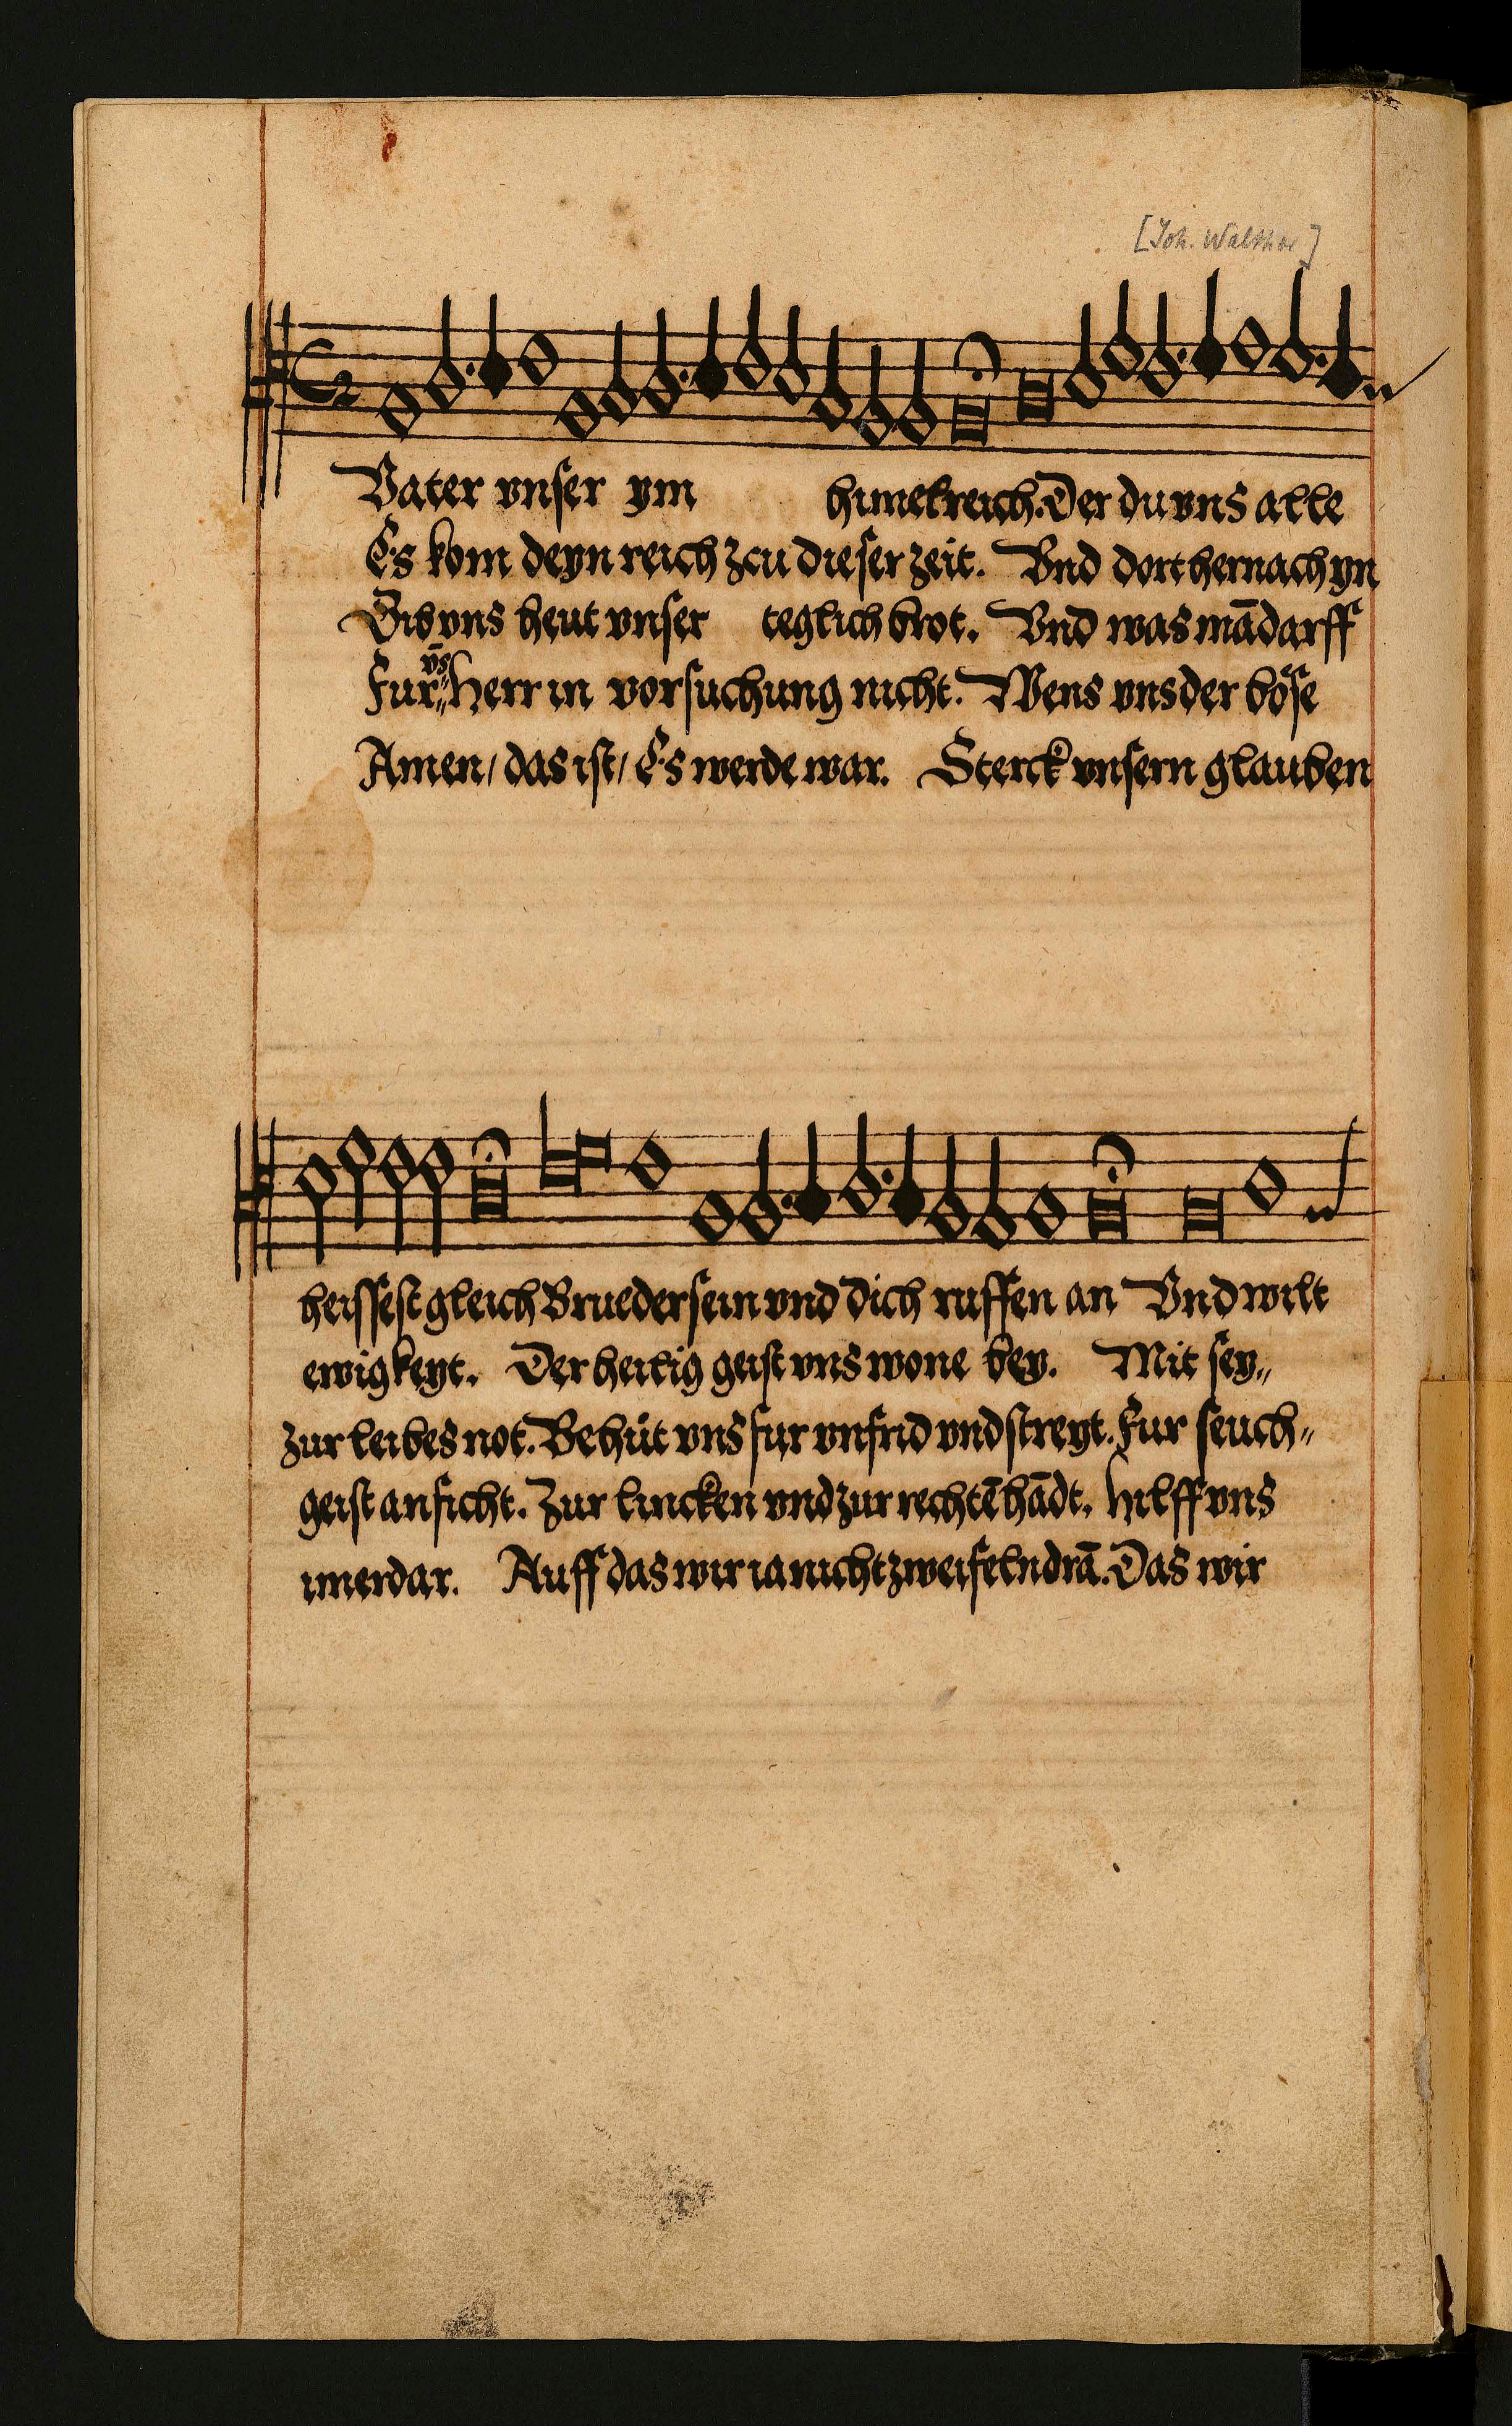 [Joh. Walther]
Vater vnser ym himelreich. Der du vns alle
Es kom deyn reich zcu dieser zeit. Vnd dort hernach yn
Gib vns heut vnser teglich brot. Vnd was mā darff
vs̄
Fur„ Herr in vorsuchung nicht. Wens vns der böse
Amen/ das ist/ Es werde war. Sterck vnsern glauben
heissest gleich Brueder sein vnd dich ruffen an Vnd wilt
ewigkeyt. Der heilig geist vns wone bey. Mit sey„
zur leibes not. Behüt vns fur vnfrid vnd streyt. Fur seuch„
geist anficht. Zur lincken vnd zur rechtē hādt. Hilff vns
imerdar. Auff das wir ia nicht zweifeln drā. Das wir